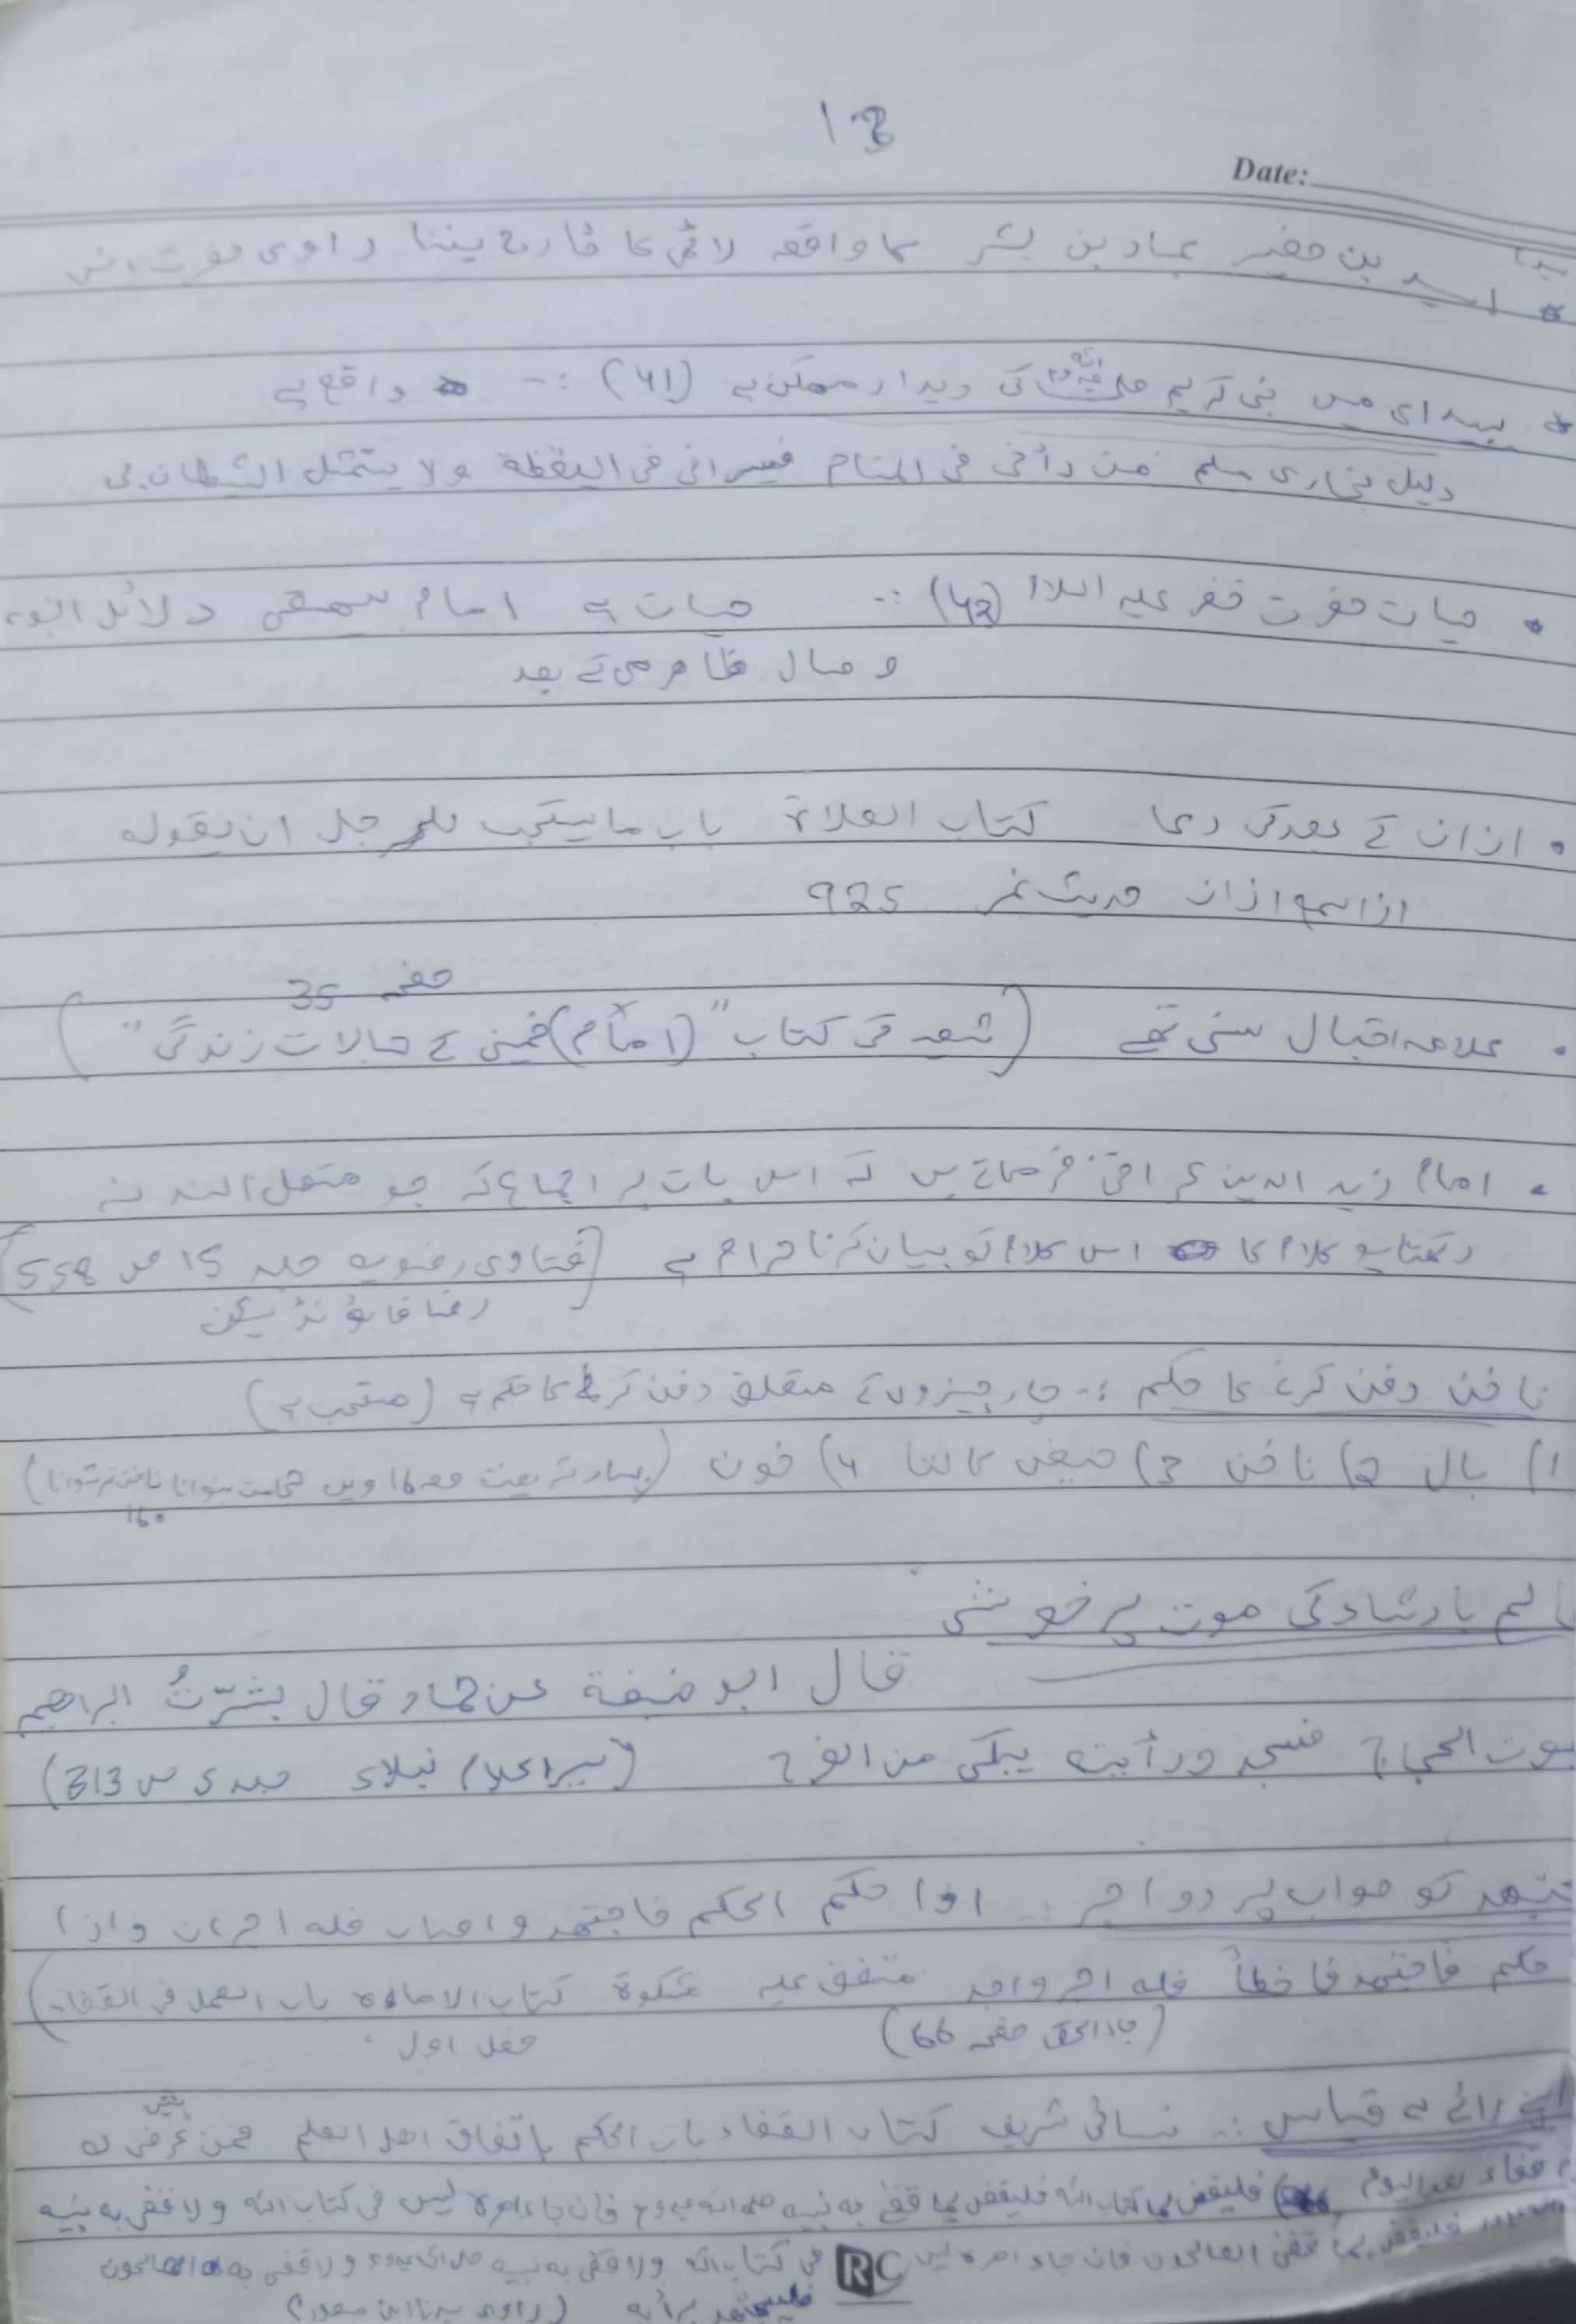 13
Date:
سیدنا
* اسید بن حضیر عباد بن بشر کا واقعہ لاٹھی کا ٹارچ بننا راوی حضرت انس
* بیداری میں نبی کریم صلی اللہ علیہ وسلم کی دیدار ممکن ہے (41) :- واقع ہے
دلیل بخاری مسلم من رأنی فی المنام فسیرانی فی الیقظة ولا یتمثل الشیطان بی
• حیات حضرت خضر علیہ السلام (42) :- حیات ہے امام بیہقی دلائل النبوہ
وصال ظاہری کے بعد
• اذان کے بعد کی دعا کتاب الصلاة باب ما یستحب للرجل ان یقولہ
اذا سمع اذان حدیث نمبر 925
صفحہ 35
• علامہ اقبال سنی تھے (شیعہ کی کتاب "(امام) خمینی کے حالات زندگی")
• امام زین الدین عراقی فرماتے ہیں کہ اس بات پر اجماع کہ جو متصل السند نہ
رکھتا ہو کلام کا اس کلام کو بیان کرنا حرام ہے (فتاوی رضویہ جلد 15 ص 558)
رضا فاؤنڈیشن
ناخن دفن کرنے کا حکم :- چار چیزوں کے متعلق دفن کرنے کا حکم ہے (مستحب ہے)
1) بال 2) ناخن 3) حیض کا لتا 4) خون (بہار شریعت حصہ 16 ویں حجامت بنوانا ناخن ترشوانا)
16
ظالم بادشاہ کی موت پر خوشی
قال ابو حنیفة عن حماد قال بشّرتُ ابراھیم
بموت الحجاج فسجد ورأیته یبکی من الفرح (سیر اعلام نبلاء جلد 5 ص 313)
مجتھد کو صواب پر دو اجر :- اذا حکم الحکم فاجتھد واصاب فله اجران واذا
حکم فاجتھد فاخطأ فله اجر واحد متفق علیہ مشکوة کتاب الامارة باب العمل فی القضاء)
(جاء الحق صفحہ 66) فصل اول
اپنی رائے سے قیاس :- نسائی شریف کتاب القضاء باب الحکم باتفاق اھل العلم فمن عرض له
منکم
قضاء بعد الیوم فلیقض بما فی کتاب الله فلیقض بما قضی به نبیه صلی اللہ علیہ وسلم فان جاء امر لا لیس فی کتاب الله ولا قضی به نبیه
فلیقض بما قضی الصالحون فان جاء امر لیس فی کتاب الله ولا قضی به نبیه صلی اللہ علیہ وسلم ولا قضی به الصالحون
RC
فلیجتھد برأیه (راوی سیدنا ابن مسعود)